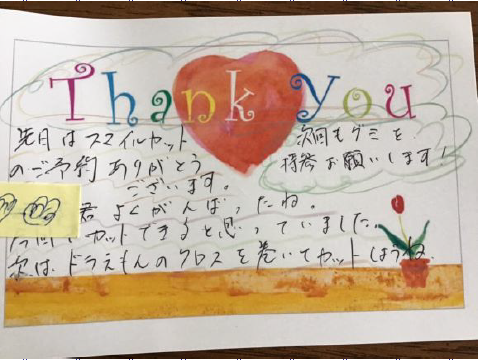 Thank you
先月はスマイルカット
のご予約ありがとう
ございます。
君 よくがんばったね。
今回もカットできると思っていました。
次は、ドラえもんのクロスを巻いてカットしようね
次回もグミを
持参お願いします!